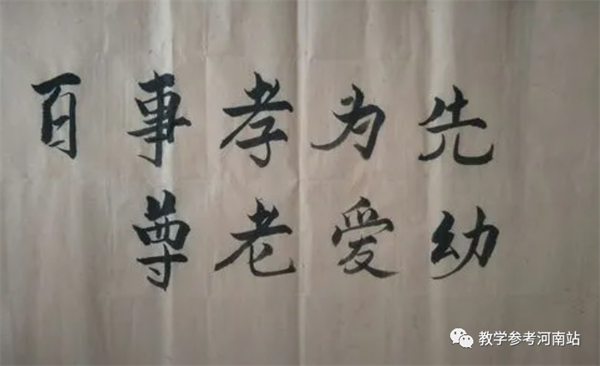 百事孝为先
尊老爱幼
教学参考河南站